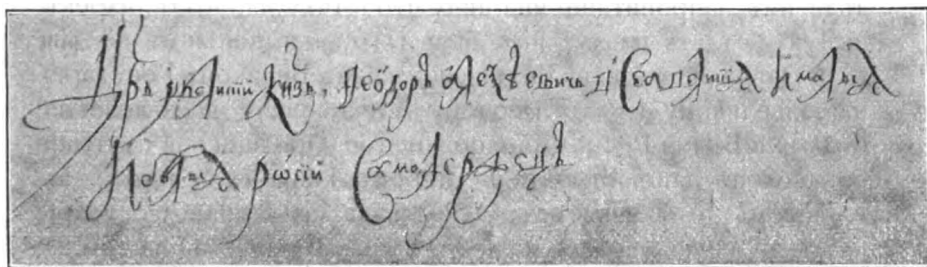 Црь і великїй Кн҃зь, Ѳеѻдоръ Алеѯѣевичь всеа великїѧ И малыѧ
И бѣлыѧ рѡсїи Самодержецъ